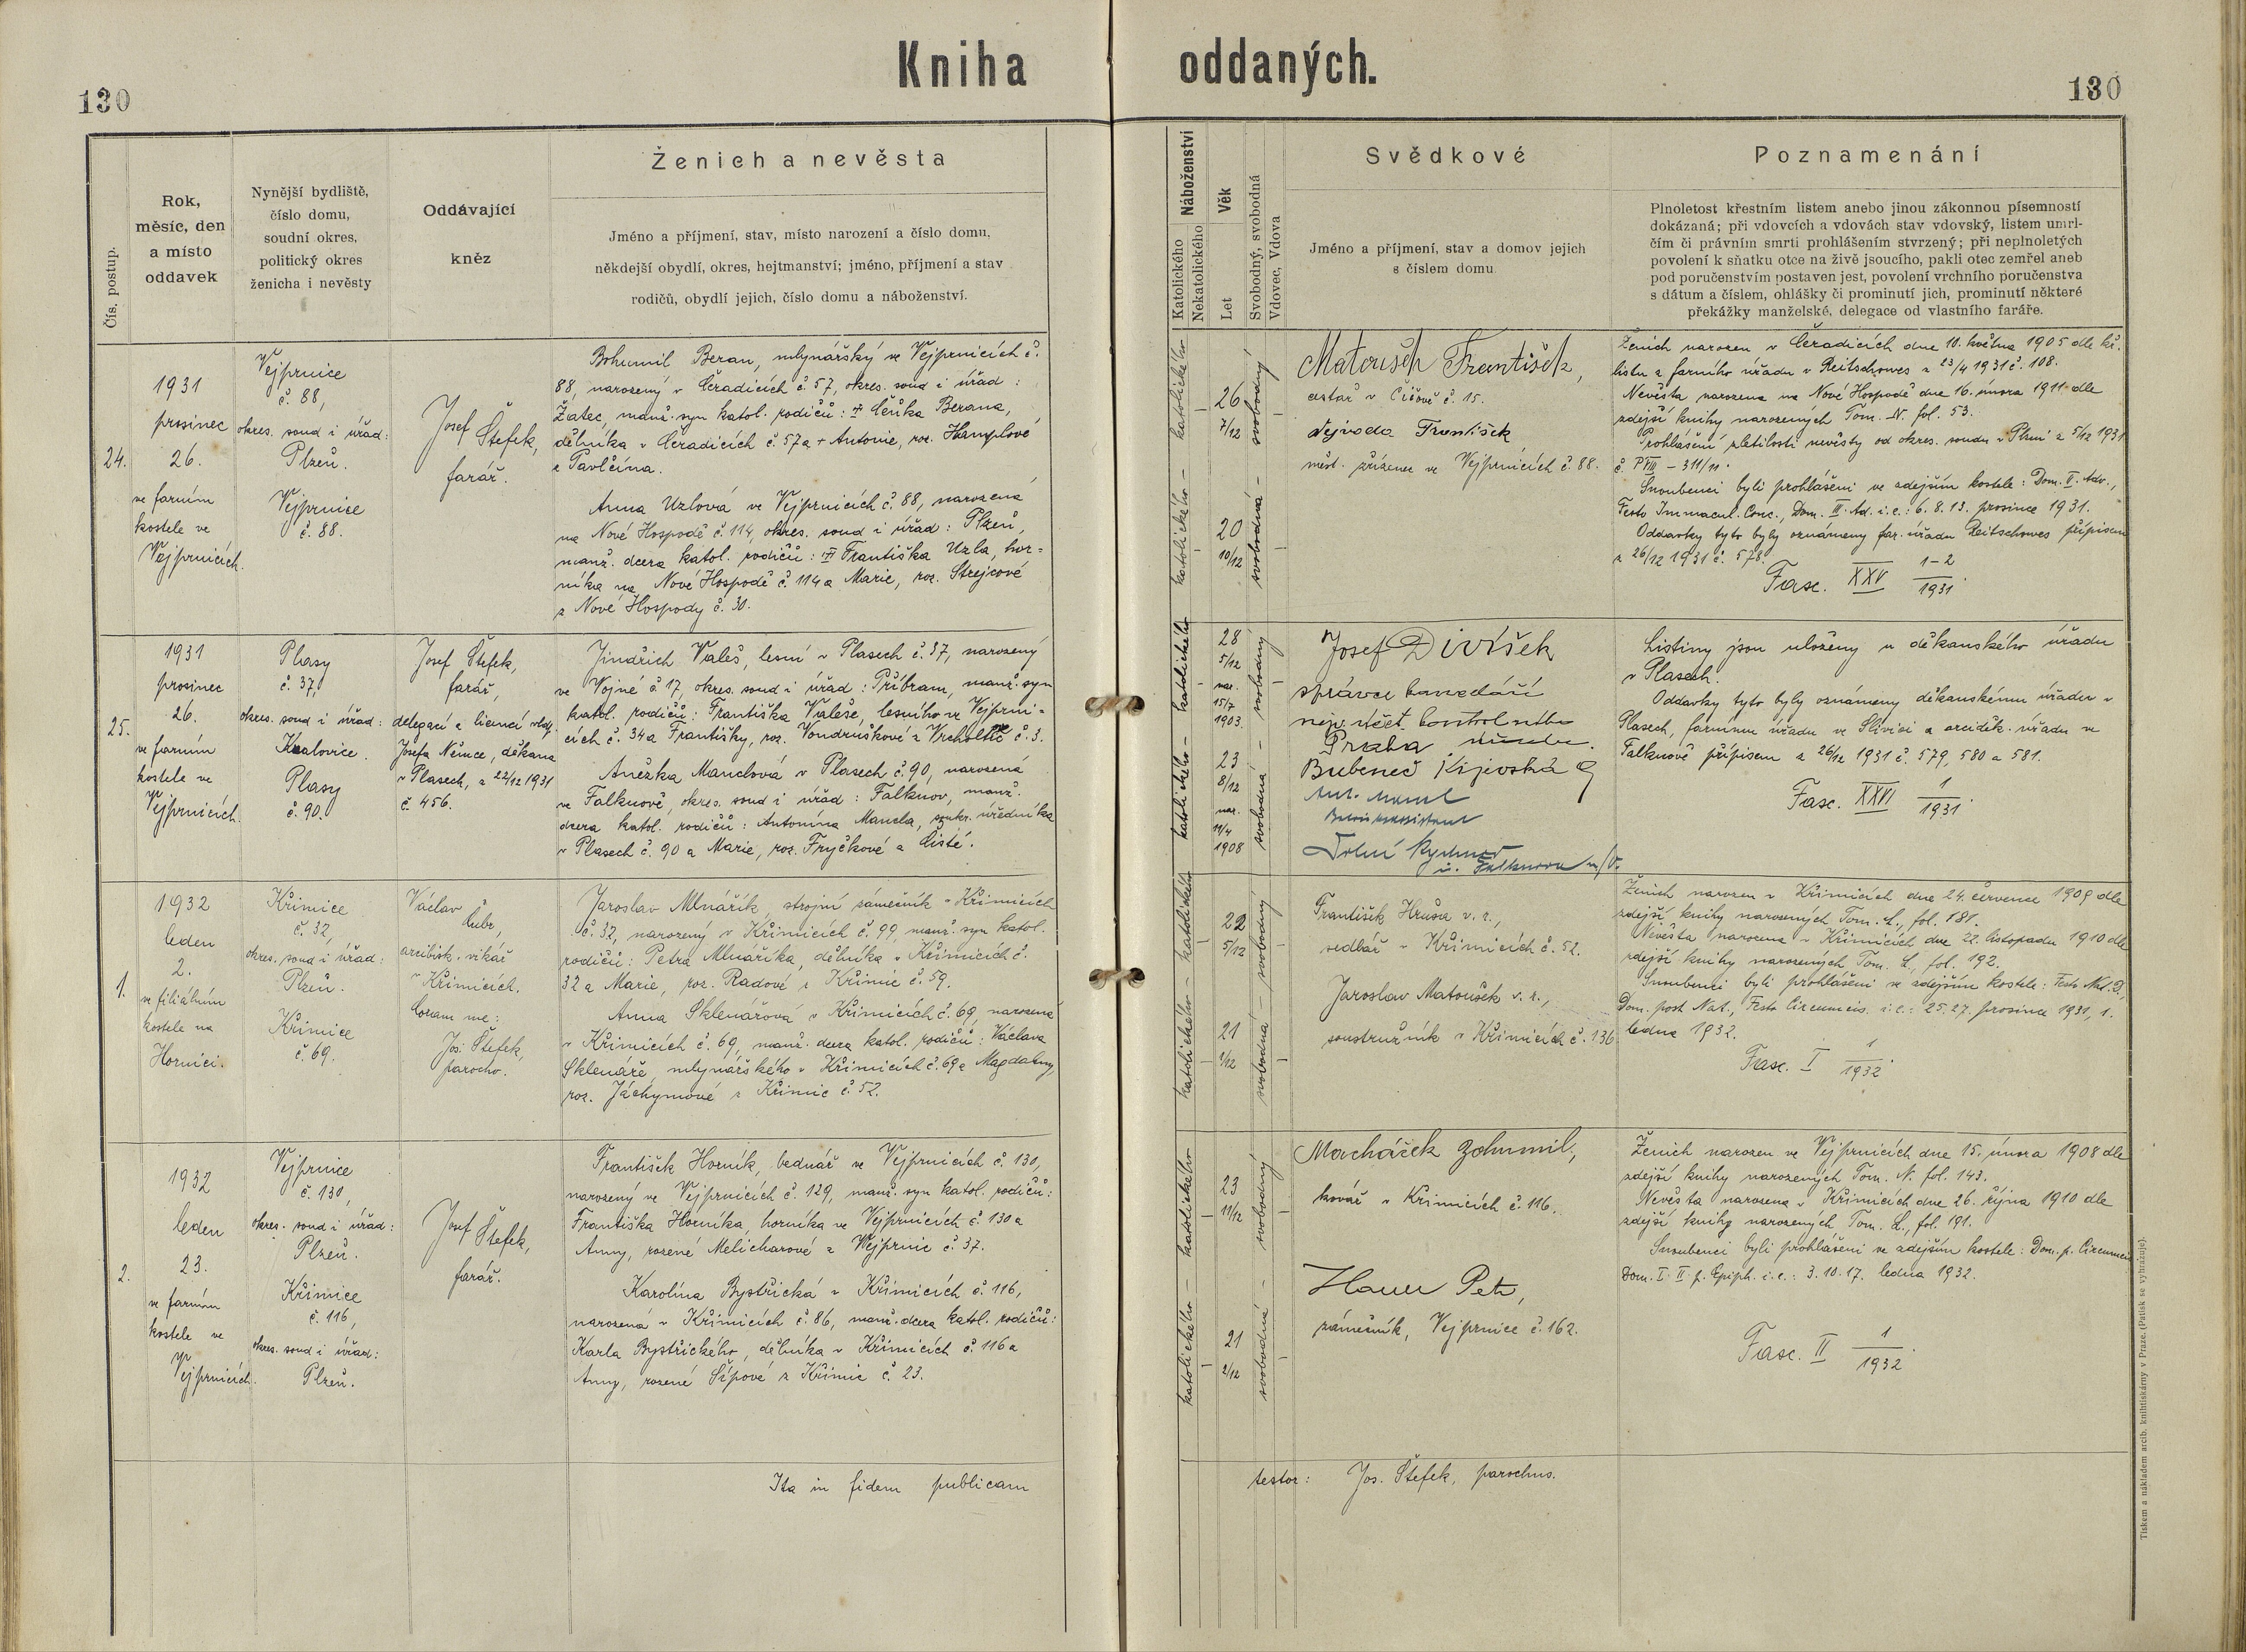 Kniha oddaných.
130
130
Čís. postup.
Rok,
měsíc, den
a místo
oddavek
Nynější bydliště,
číslo domu,
soudní okres,
politický okres
ženicha i nevěsty
Oddávající
kněz
Ženich a nevěsta
Jméno a příjmení, stav, místo narození a číslo domu,
někdejší obydlí, okres, hejtmanství; jméno, příjmení a stav
rodičů, obydlí jejich, číslo domu a náboženství.
Náboženství
Katolického
Nekatolického
Věk
Let
Svobodný, svobodná
Vdovec, Vdova
Svědkové
Jméno a příjmení, stav a domov jejich
s číslem domu.
Poznamenání
Plnoletost křestním listem anebo jinou zákonnou písemností
dokázaná; při vdovcích a vdovách stav vdovský, listem umrl-
čím či právním smrti prohlášením stvrzený; při neplnoletých
povolení k sňatku otce na živě jsoucího, pakli otec zemřel aneb
pod poručenstvím postaven jest, povolení vrchního poručenstva
s dátum a číslem, ohlášky či prominutí jich, prominutí některé
překážky manželské, delegace od vlastního faráře.
24.
1931
prosinec
26.
ve farním
kostele ve
Vejprnicích.
Vejprnice
č. 88,
okres. soud i úřad:
Plzeň.
Vejprnice
č. 88.
Josef
Štefek,
farář.
Bohumil Beran, mlynářský ve Vejprnicích č.
88, narozený v Čeradicích č. 57, okres. soud i úřad:
Žatec, manž. syn katol. rodičů: Čeňka Berana,
dělníka v Čeradicích č. 57 a + Antonie, roz. Hamplové
z Pavlčína.
Anna Uzlová ve Vejprnicích č. 88, narozená
na Nové Hospodě č. 114, okres. soud i úřad: Plzeň,
manž. dcera katol. rodičů: Františka Uzla, hor-
níka na Nové Hospodě č. 114 a Marie, roz. Strejcové
z Nové Hospody č. 30.
katolického – katolického –
26
7/12
20
10/12
svobodný
svobodná –
Matoušek František,
cestář v Čižově č. 15.
Vejvoda František
měst. zřízenec ve Vejprnicích č. 88.
Ženich narozen v Čeradicích dne 10. května 1905 dle kř.
listu z farního úřadu v Reitschowes z 23/4 1931 č. 108.
Nevěsta narozena na Nové Hospodě dne 16. února 1911 dle
zdejší knihy narozených Tom. N. fol. 53.
Prohlášení zletilosti nevěsty od okres. soudu v Plzni z 5/12 1931
č. P VIII – 311/11.
Snoubenci byli prohlášeni ve zdejším kostele: Dom. II. Adv.,
Festo Immacul. Conc., Dom. III. Ad. i.e.: 6. 8. 13. prosince 1931.
Oddavky tyto byly oznámeny far. úřadu Reitschowes přípisem
z 26/12 1931 č. 578.
Fasc. XXV 1–2/1931.
25.
1931
prosinec
26.
ve farním
kostele ve
Vejprnicích.
Plasy
č. 37,
okres. soud i úřad:
Kralovice.
Plasy
č. 90.
Josef Štefek,
farář,
delegací a licencí vldp.
Josefa Němce, děkana
v Plasech, z 22/12 1931
č. 456.
Jindřich Valeš, lesní v Plasech č. 37, narozený
ve Vojné č. 17, okres. soud i úřad: Příbram, manž. syn
katol. rodičů: Františka Valeše, lesního ve Vejprni-
cích č. 34 a Františky, roz. Vondruškové z Vrcholtic č. 3.
Anežka Manclová v Plasech č. 90, narozená
ve Falknově, okres. soud i úřad: Falknov, manž.
dcera katol. rodičů: Antonína Mancla, soukr. úředníka
v Plasech č. 90 a Marie, roz. Fryčkové z Čisté.
katolického – katolického
28
5/12
nar.
15/7
1903.
23
8/12
nar.
11/4
1908
svobodný
svobodná –
Josef Divíšek
správce kanceláří
nejv. účet. kontrol. úřadu
Praha
Bubeneč Kijevská 9
Ant. Mancl
Dolní Rychnov
u Falknova n/O.
Listiny jsou uloženy u děkanského úřadu
v Plasech.
Oddavky tyto byly oznámeny děkanskému úřadu v
Plasech, farnímu úřadu ve Slivici a arciděk. úřadu ve
Falknově přípisem z 26/12 1931 č. 579, 580 a 581.
Fasc. XXVI 1/1931.
1.
1932
leden
2.
ve filiálním
kostele na
Hornici.
Křimice
č. 32,
okres. soud i úřad:
Plzeň.
Křimice
č. 69.
Václav
Kubr,
arcibisk. vikář
v Křimicích.
Coram me:
Jos. Štefek,
parocho.
Jaroslav Mlnařík, strojní zámečník v Křimicích
č. 32, narozený v Křimicích č. 99, manž. syn katol.
rodičů: Petra Mlnaříka, dělníka v Křimicích č.
32 a Marie, roz. Radové z Křimic č. 59.
Anna Sklenářová v Křimicích č. 69, narozená
v Křimicích č. 69, manž. dcera katol. rodičů: Václava
Sklenáře, mlynářského v Křimicích č. 69 a Magdaleny,
roz. Jáchymové z Křimic č. 52.
katolického – katolického
22
5/12
21
1/12
svobodný
svobodná –
František Hrůza v. r.,
sedlář v Křimicích č. 52.
Jaroslav Matoušek v. r.,
soustružník v Křimicích č. 136.
Ženich narozen v Křimicích dne 24. července 1909 dle
zdejší knihy narozených Tom. L., fol. 181.
Nevěsta narozena v Křimicích dne 22. listopadu 1910 dle
zdejší knihy narozených Tom. L., fol. 192.
Snoubenci byli prohlášeni ve zdejším kostele: Festo Nat. D.,
Dom. post Nat., Festo Circumcis. i.e.: 25. 27. prosince 1931, 1.
ledna 1932.
Fasc. I 1/1932.
2.
1932
leden
23.
ve farním
kostele ve
Vejprnicích.
Vejprnice
č. 130,
okres. soud i úřad:
Plzeň.
Křimice
č. 116,
okres. soud i úřad:
Plzeň.
Josef Štefek,
farář.
František Horník, bednář ve Vejprnicích č. 130,
narozený ve Vejprnicích č. 129, manž. syn katol. rodičů:
Františka Horníka, horníka ve Vejprnicích č. 130 a
Anny, rozené Melicharové z Vejprnic č. 37.
Karolína Bystřická v Křimicích č. 116,
narozená v Křimicích č. 86, manž. dcera katol. rodičů:
Karla Bystřického, dělníka v Křimicích č. 116 a
Anny, rozené Šípové z Křimic č. 23.
katolického – katolického
23
11/12
21
2/12
svobodný
svobodná –
Macháček Bohumil,
kovář v Křimicích č. 116.
Petr,
zámečník, Vejprnice č. 162.
Ženich narozen ve Vejprnicích dne 15. února 1908 dle
zdejší knihy narozených Tom. N. fol. 143.
Nevěsta narozena v Křimicích dne 26. října 1910 dle
zdejší knihy narozených Tom. L., fol. 191.
Snoubenci byli prohlášeni ve zdejším kostele: Dom. p. Circumcis.
Dom. I. II. p. Epiph. i.e.: 3. 10. 17. ledna 1932.
Fasc. II 1/1932.
Ita in fidem publicam testor: Jos. Štefek, parochus.
Tiskem a nákladem arcib. knihtiskárny v Praze. (Patisk se vyhrazuje).